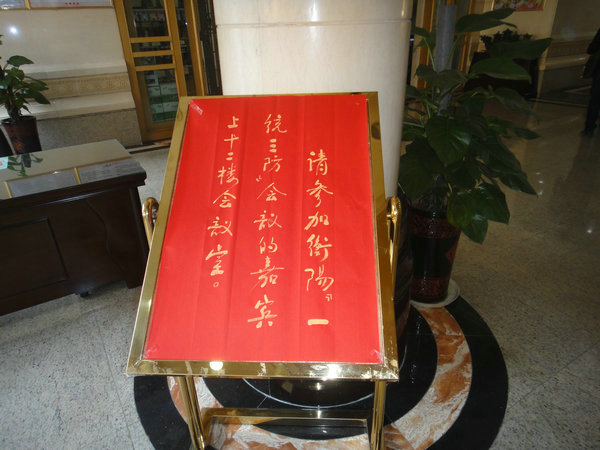 请参加衡陽“一
统三防”会议的嘉宾
上十二楼会议室。